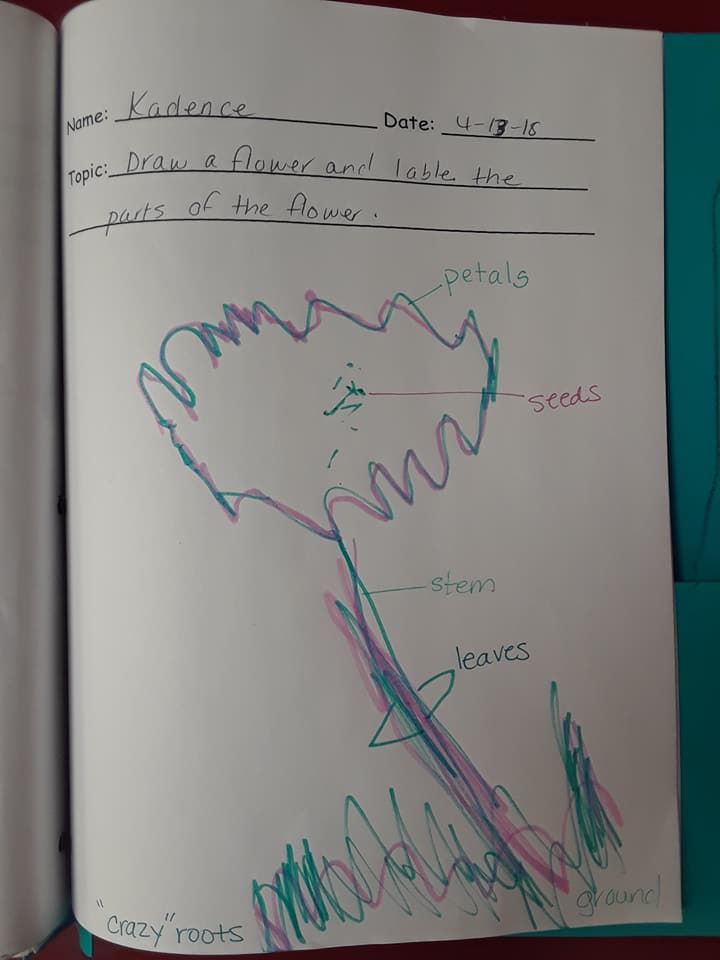 Name: Kadence Date: 4-13-18
Topic: Draw a flower and lable the
parts of the flower.
petals
seeds
stem
leaves
ground
"crazy" roots